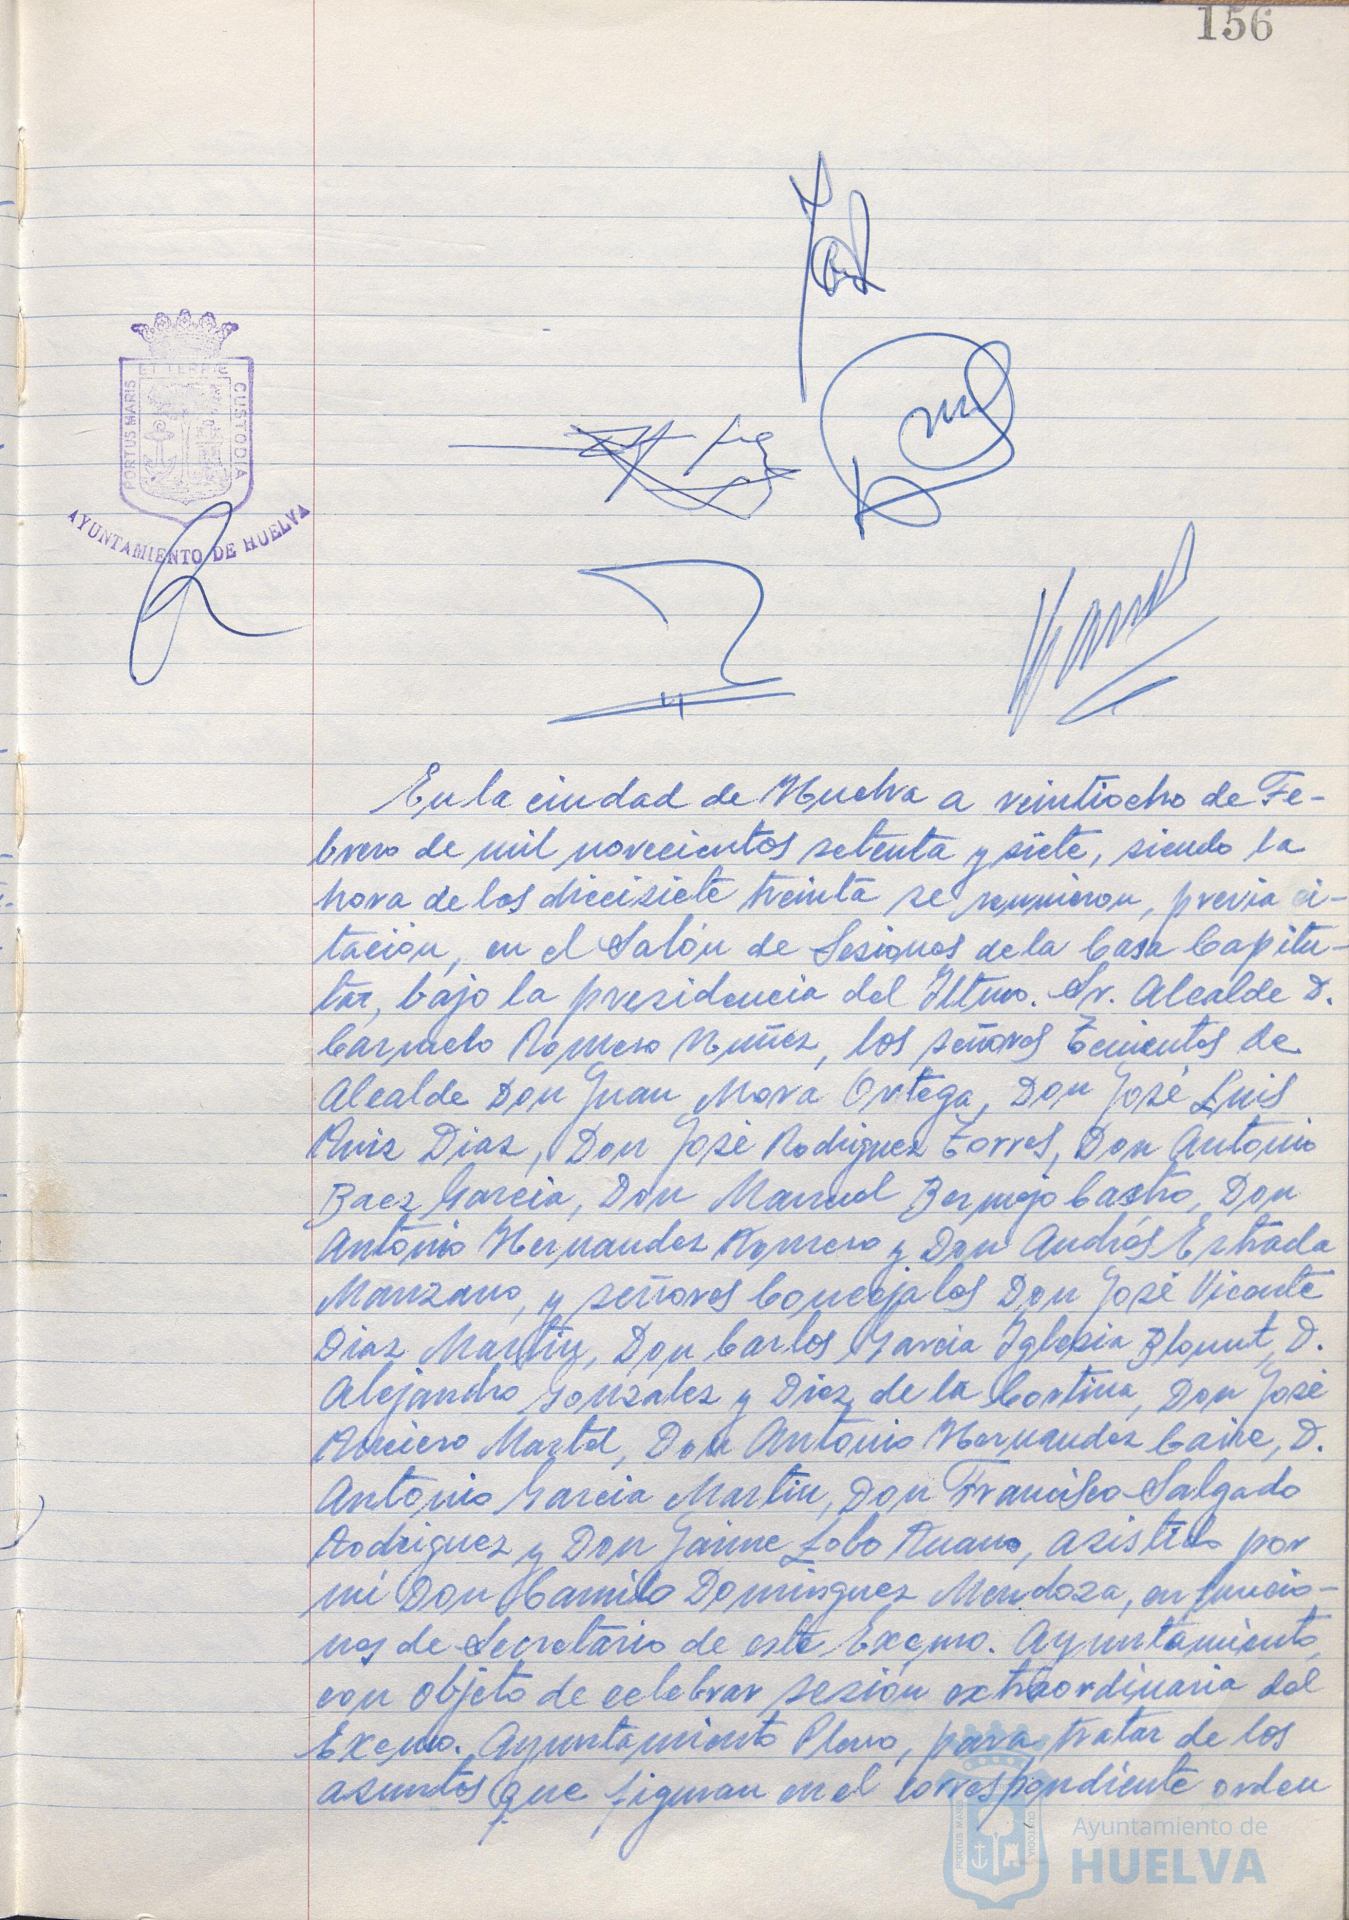 156
ET TERRAE
PORTUS MARIS
CUSTODIA
AYUNTAMIENTO DE HUELVA
En la ciudad de Huelva a veintiocho de Fe-
brero de mil novecientos setenta y siete, siendo la
hora de las diecisiete treinta se reunieron, previa ci-
tación, en el Salón de Sesiones de la Casa Capitu-
lar, bajo la presidencia del Iltmo. Sr. Alcalde D.
Carmelo Romero Nuñez, los señores Tenientes de
Alcalde Don Juan Mora Ortega, Don José Luis
Ruiz Diaz, Don José Rodriguez Torres, Don Antonio
Baez Garcia, Don Manuel Bermejo Castro, Don
Antonio Hernandez Romero y Don Andrés Estrada
Manzano, y señores Concejales Don José Vicente
Diaz Martin, Don Carlos Garcia Iglesia Blount, D.
Alejandro Gonzalez y Diez de la Cortina, Don José
Martel, Don Antonio Hernandez Caire, D.
Antonio Garcia Martin, Don Francisco Salgado
Rodriguez y Don Jaime Lobo Ruano, asistido por
mi Don Camilo Dominguez Mendoza, en funcio-
nes de Secretario de este Excmo. Ayuntamiento,
con objeto de celebrar sesión extraordinaria del
Excmo. Ayuntamiento Pleno, para tratar de los
asuntos que figuran en el correspondiente orden
PORTUS MARIS
CUSTODIA
Ayuntamiento de
HUELVA